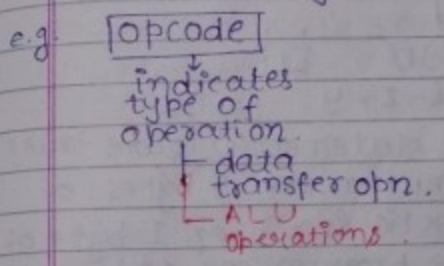 e.g. opcode
indicates
type of
operation.
data
transfer opn.
ALU
operations.